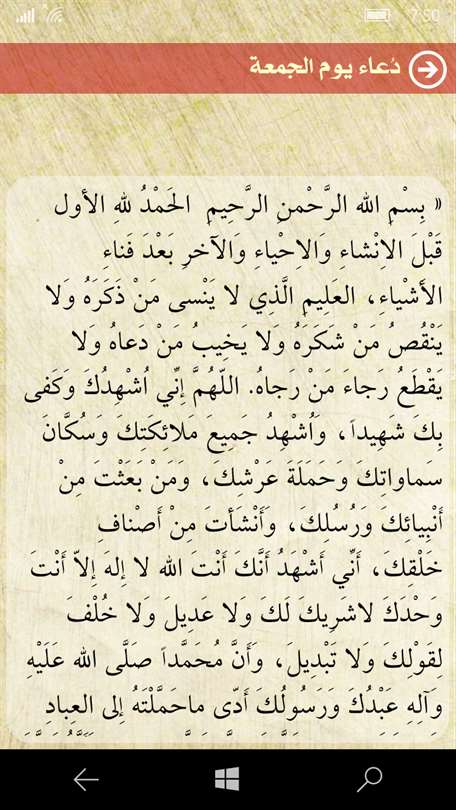 7:50
دُعاء يوم الجمعة
« بِسْمِ الله الرَّحْمنِ الرَّحِيمِ الحَمْدُ للهِ الأول
قَبْلَ الاِنْشاءِ وَالاِحْياءِ وَالآخرِ بَعْدَ فَناءِ
الأَشْياءِ، العَلِيمِ الَّذِي لا يَنْسى مَنْ ذَكَرَهُ وَلا
يَنْقُصُ مَنْ شَكَرَهُ وَلا يَخِيبُ مَنْ دَعاهُ ولا
يَقْطَعُ رَجاءَ مَنْ رَجاهُ. اللّهُمَّ إنِّي اُشْهِدُكَ وَكَفى
بِكَ شَهِيداً، وَاُشْهِدُ جَمِيعَ مَلائِكَتِكَ وَسُكَّانَ
سَماواتِكَ وَحَمَلَةَ عَرْشِكَ، وَمَنْ بَعَثْتَ مِنْ
أَنْبِيائكَ وَرُسُلِكَ، وَأَنْشَأتَ مِنْ أَصْنافِ
خَلْقِكَ، أَنِّي أَشْهَدُ أَنَّكَ أَنْتَ الله لا إلهَ إلاّ أَنْتَ
وَحْدَكَ لاشرِيكَ لَكَ وَلا عَدِيلَ وَلا خُلْفَ
لِقَوْلِكَ وَلا تَبْدِيلَ، وَأَنَّ مُحَمَّداً صَلَّى الله عَلَيْهِ
وَآلِهِ عَبْدُكَ وَرَسُولُكَ أَدّى ماحَمَّلْتَهُ إلى العِبادِ